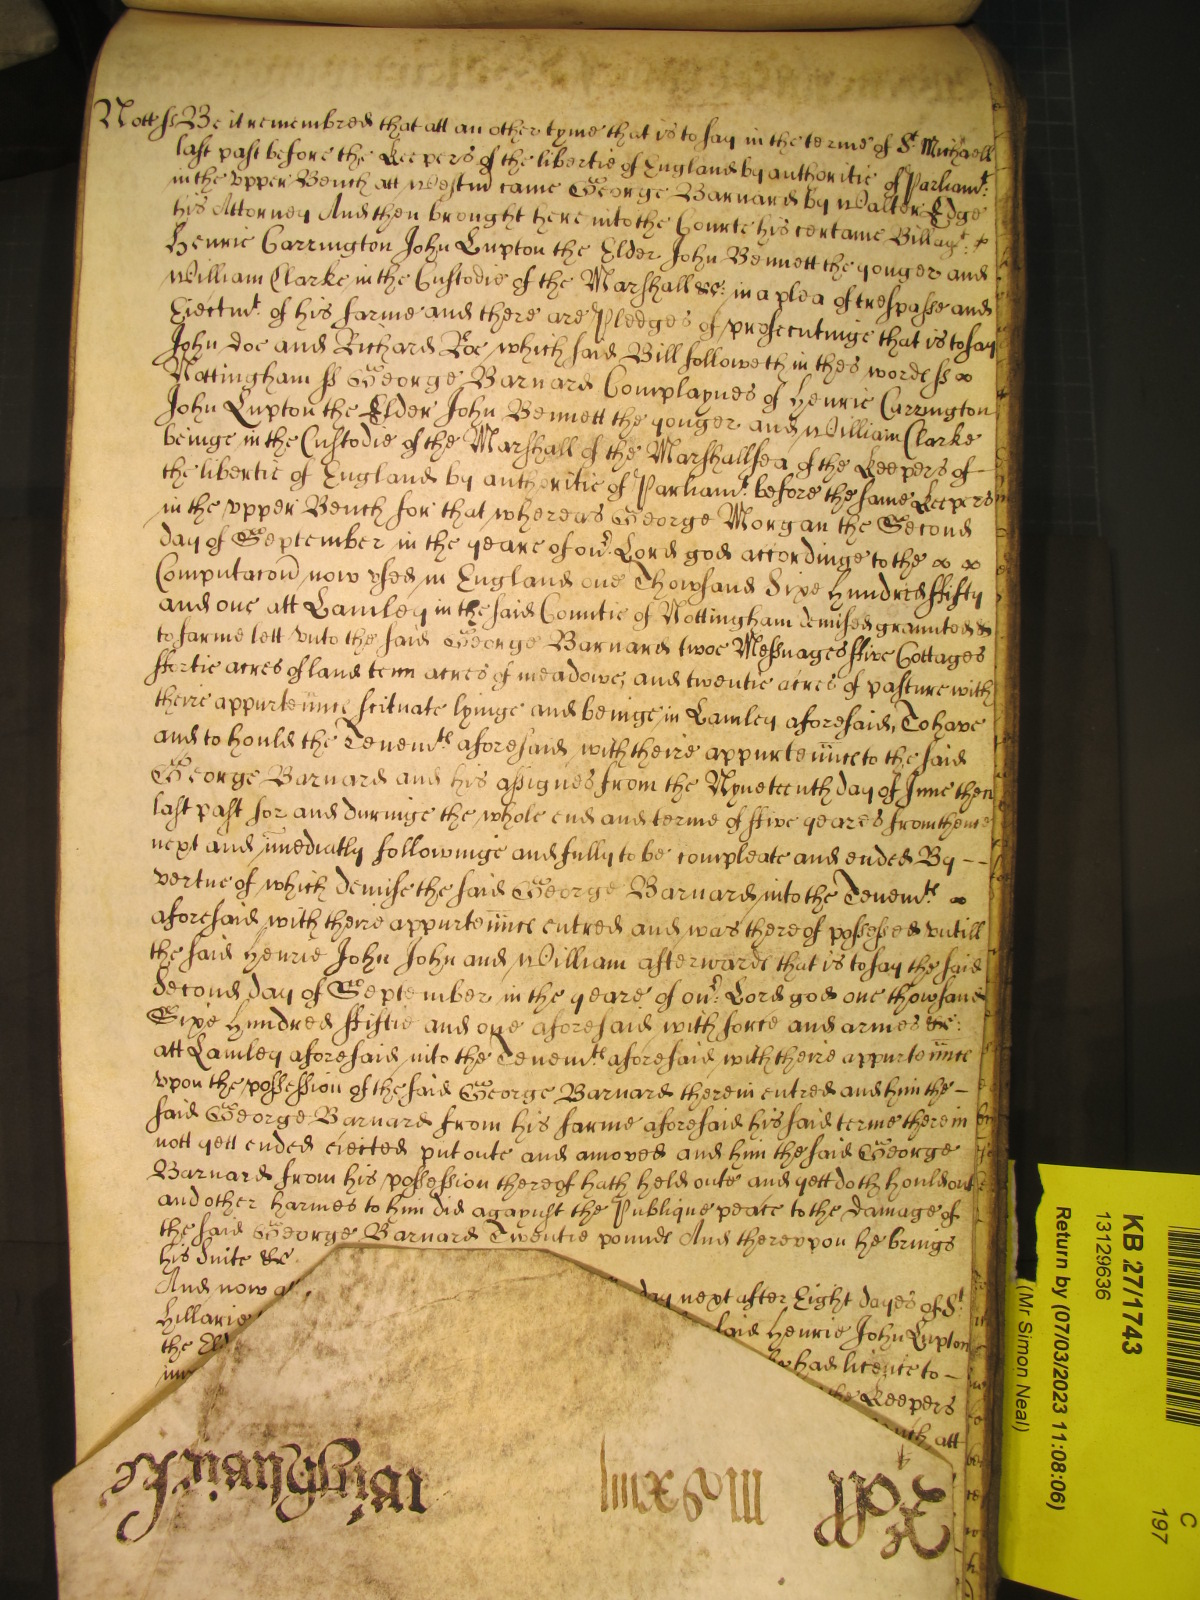 Nott ss Be it remembred that att an other tyme that is to say in the terme of St. Michaell
last past before the Keepers of the libertie of England by authoritie of Parliamt:
in the vpper Bench att Westm came George Barnard by Walter Edge
his Attorney And then brought here into the Courte his certaine Bill agt:
Henrie Carrington John Lupton the Elder John Bennett the yonger and
William Clarke in the Custodie of the Marshall &c: in a plea of trespasse and
Eiectmt. of his farme and there are Pledges of prosecutinge that is to say
John Doe and Richard Roe which said Bill followeth in thes wordes ss
Nottingham ss George Barnard Complaynes of Henrie Carrington
John Lupton the Elder John Bennett the yonger and William Clarke
beinge in the Custodie of the Marshall of the Marshallsea of the Keepers of
the libertie of England by authoritie of Parliamt. before the same Keepers
in the vpper Bench for that whereas George Morgan the Second
day of September in the yeare of our. Lord god accordinge to the
Computacon now vsed in England one Thowsand Sixe Hundred ffifty
and one att Lamley in the said Countie of Nottingham demised graunted &
to farme lett vnto the said George Barnard twoe Messuages ffive Cottages
ffortie acres of land tenn acres of meadowe, and twentie acres of pasture with
theire appurtennce scituate lyinge and beinge in Lamley aforesaid, To have
and to hould the Tenemts aforesaid with theire appurtennce to the said
George Barnard and his assignes from the Nyneteenth day of June then
last past for and duringe the whole end and terme of ffive yeares from thence
next and imediatly followinge and fully to be compleate and ended By --
vertue of which demise the said George Barnard into the Tenemts
aforesaid with theire appurtennce entred and was thereof possessed vntill
the said Henrie John John and William afterwards that is to say the said
Second day of September in the yeare of our: Lord god one thowsand
Sixe Hundred ffiftie and one aforesaid with force and armes &c:
att Lamley aforesaid into the Tenemts aforesaid with theire appurtennce
vpon the possession of the said George Barnard therein entred and him the -
said George Barnard from his farme aforesaid his said terme therein
nott yett ended eiected put oute and amoved and him the said George
Barnard from his possession thereof hath held oute and yett doth hould out
and other harmes to him did agaynst the Publique peace to the damage of
the said George Barnard Twentie pounds And therevpon he brings
his Suite &c
And now at day next after Eight dayes of St.
Hillarie said Henrie John Lupton
the had licence to -
the Keepers
att
KB 27/1743
13129636
Return by (07/03/2023 11:08:06)
(Mr Simon Neal)
C
197